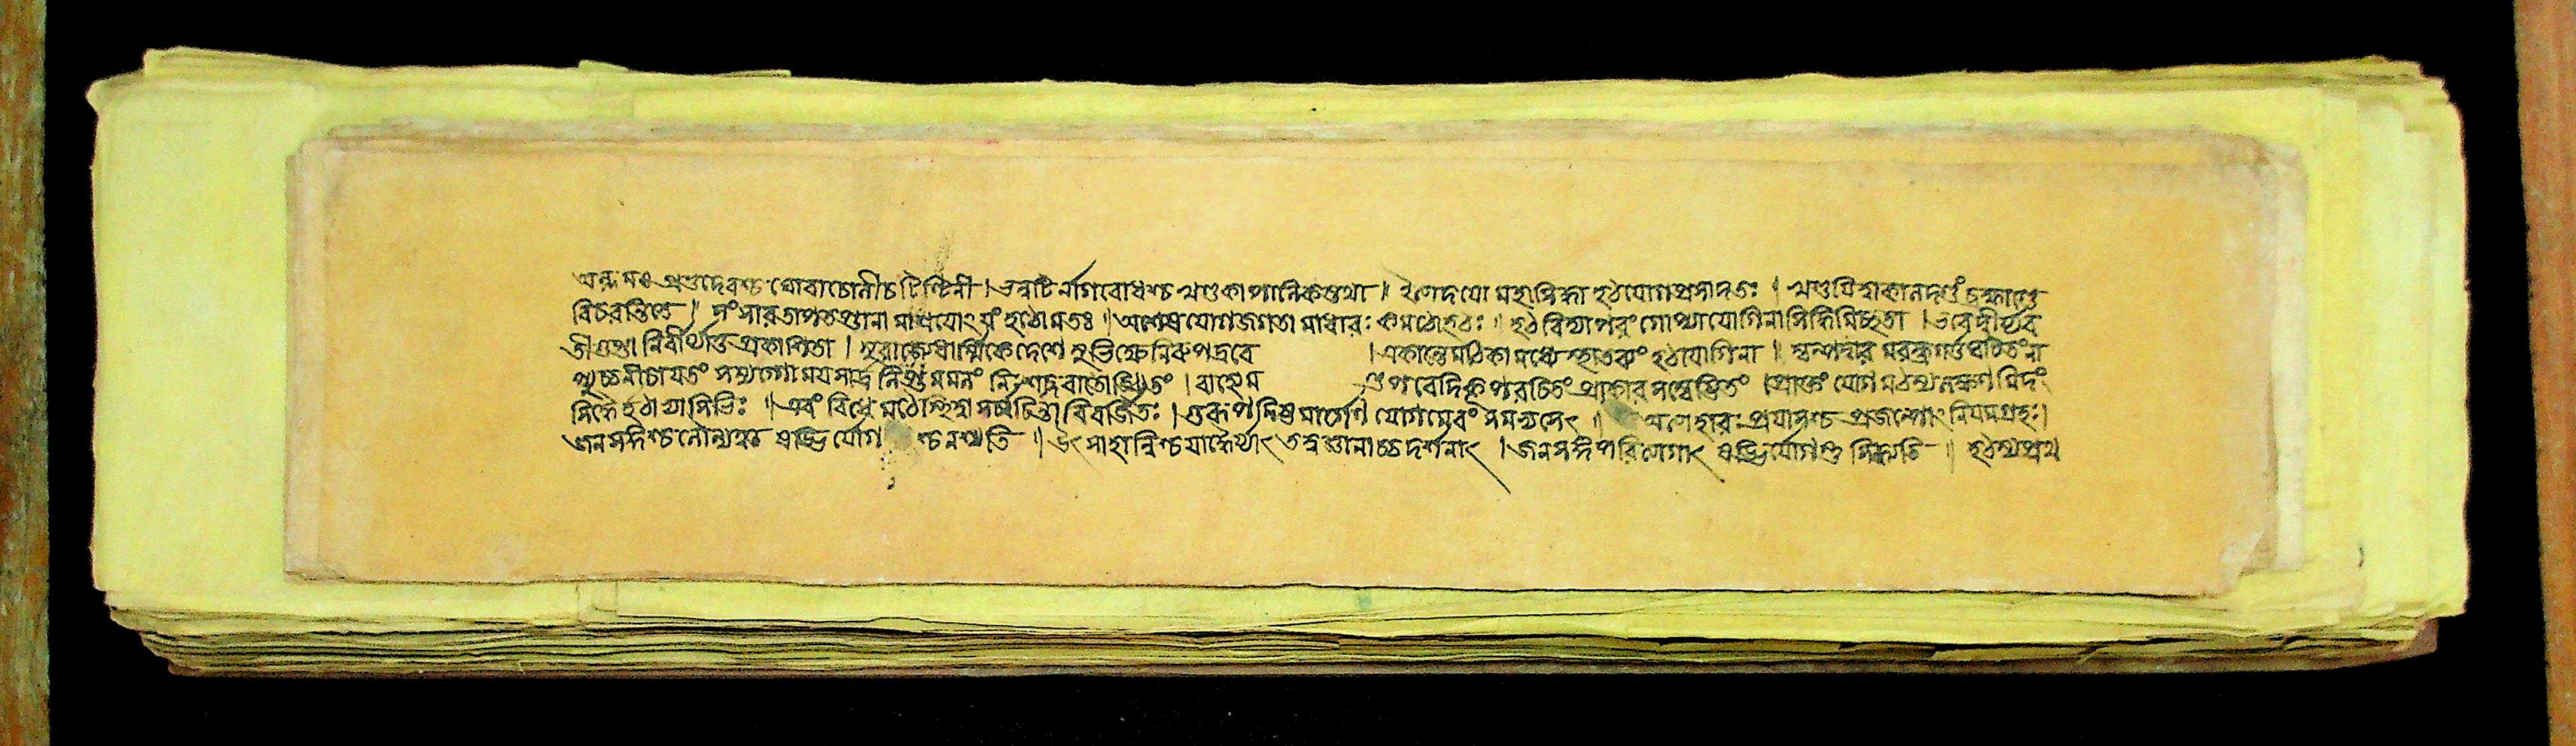 অল্লমঃ প্রভুদেবশ্চ ঘোবাচোলীচ টিন্টিনী । ভন্নটির্নাগবোধশ্চ খণ্ডকাপালিকস্তথা ॥ ইত্যেদয়ো মহাসিদ্ধা হঠযোগপ্রসাদতঃ । খণ্ডয়িত্বাকালদণ্ডং ব্রহ্মাণ্ডে
বিচরন্তিতে ॥ সংসারতাপতপ্তানা মাশ্রয়োহয়ং হঠোমতঃ ॥ অশেষযোগজগতা মাধারঃ কমঠোহঠঃ ॥ হঠবিদ্যাপরং গোপ্যাযোগিনাসিদ্ধিমিচ্ছতা । ভবেদ্বীর্য্যব
তীগুপ্তা নির্বীর্য্যাতু প্রকাশিতা । সুরাজ্যেধার্ম্মিকেদেশে সুভিক্ষেনিরুপদ্রবে । একান্তেমঠিকামধ্যে স্থাতব্যং হঠযোগিনা ॥ স্বল্পদ্বার মরন্ধ্রগর্ত্তঘটিতং না
প্যুচ্চনীচায়তং সম্যগ্গোময়সান্দ্র লিপ্তমমলং নিঃশেষবাধোজ্ঝিতং । বাহ্যেম ণ্ডপবেদিকূপরচিতং প্রাকারসম্বেষ্টিতং । প্রোক্তং যোগমঠস্যলক্ষণমিদং
সিদ্ধৈর্হঠাভ্যাসিভিঃ ॥ এবং বিধে মঠেস্থিত্বা সর্ব্বচিন্তাবিবর্জিতঃ । গুরূপদিষ্টমার্গেণ যোগমেবং সমভ্যসেৎ ॥ অত্যাহারঃ প্রয়াসশ্চ প্রজল্পোহনিয়মগ্রহঃ।
জনসঙ্গশ্চলৌল্যঞ্চ ষড্ভির্যোগ শ্চনশ্যতি ॥ উৎসাহান্নিশ্চয়াদ্ধৈর্য্যাৎ তত্ত্বজ্ঞানাচ্চদর্শনাৎ । জনসঙ্গপরিত্যাগাৎ ষড্ভির্যোগস্তু সিদ্ধ্যতি ॥ হঠস্যপ্রথ